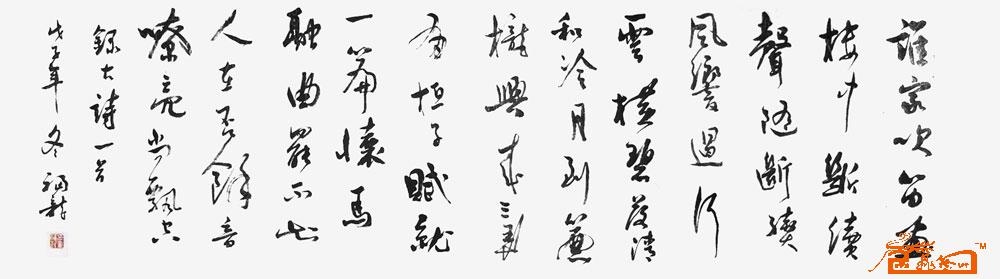 誰家吹笛畫
樓中斷續
聲隨斷續
風響遏行
雲橫碧落清
和冷月到簾
櫳興來三弄
有桓子賦就
一篇懷馬
融曲罷不知
人在否餘音
嘹亮尚飄空
錄古詩一首
戊子年冬